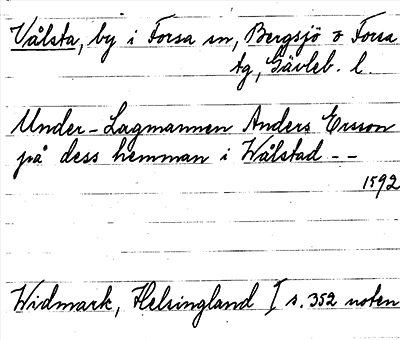 Vålsta, by i Forsa sn, Bergsjö o Forsa
tg, Gävleb. l.
Under-Lagmannen Anders Ersson
på dess hemman i Wålstad --
1592
Widmark, Helsingland I s. 352 noten